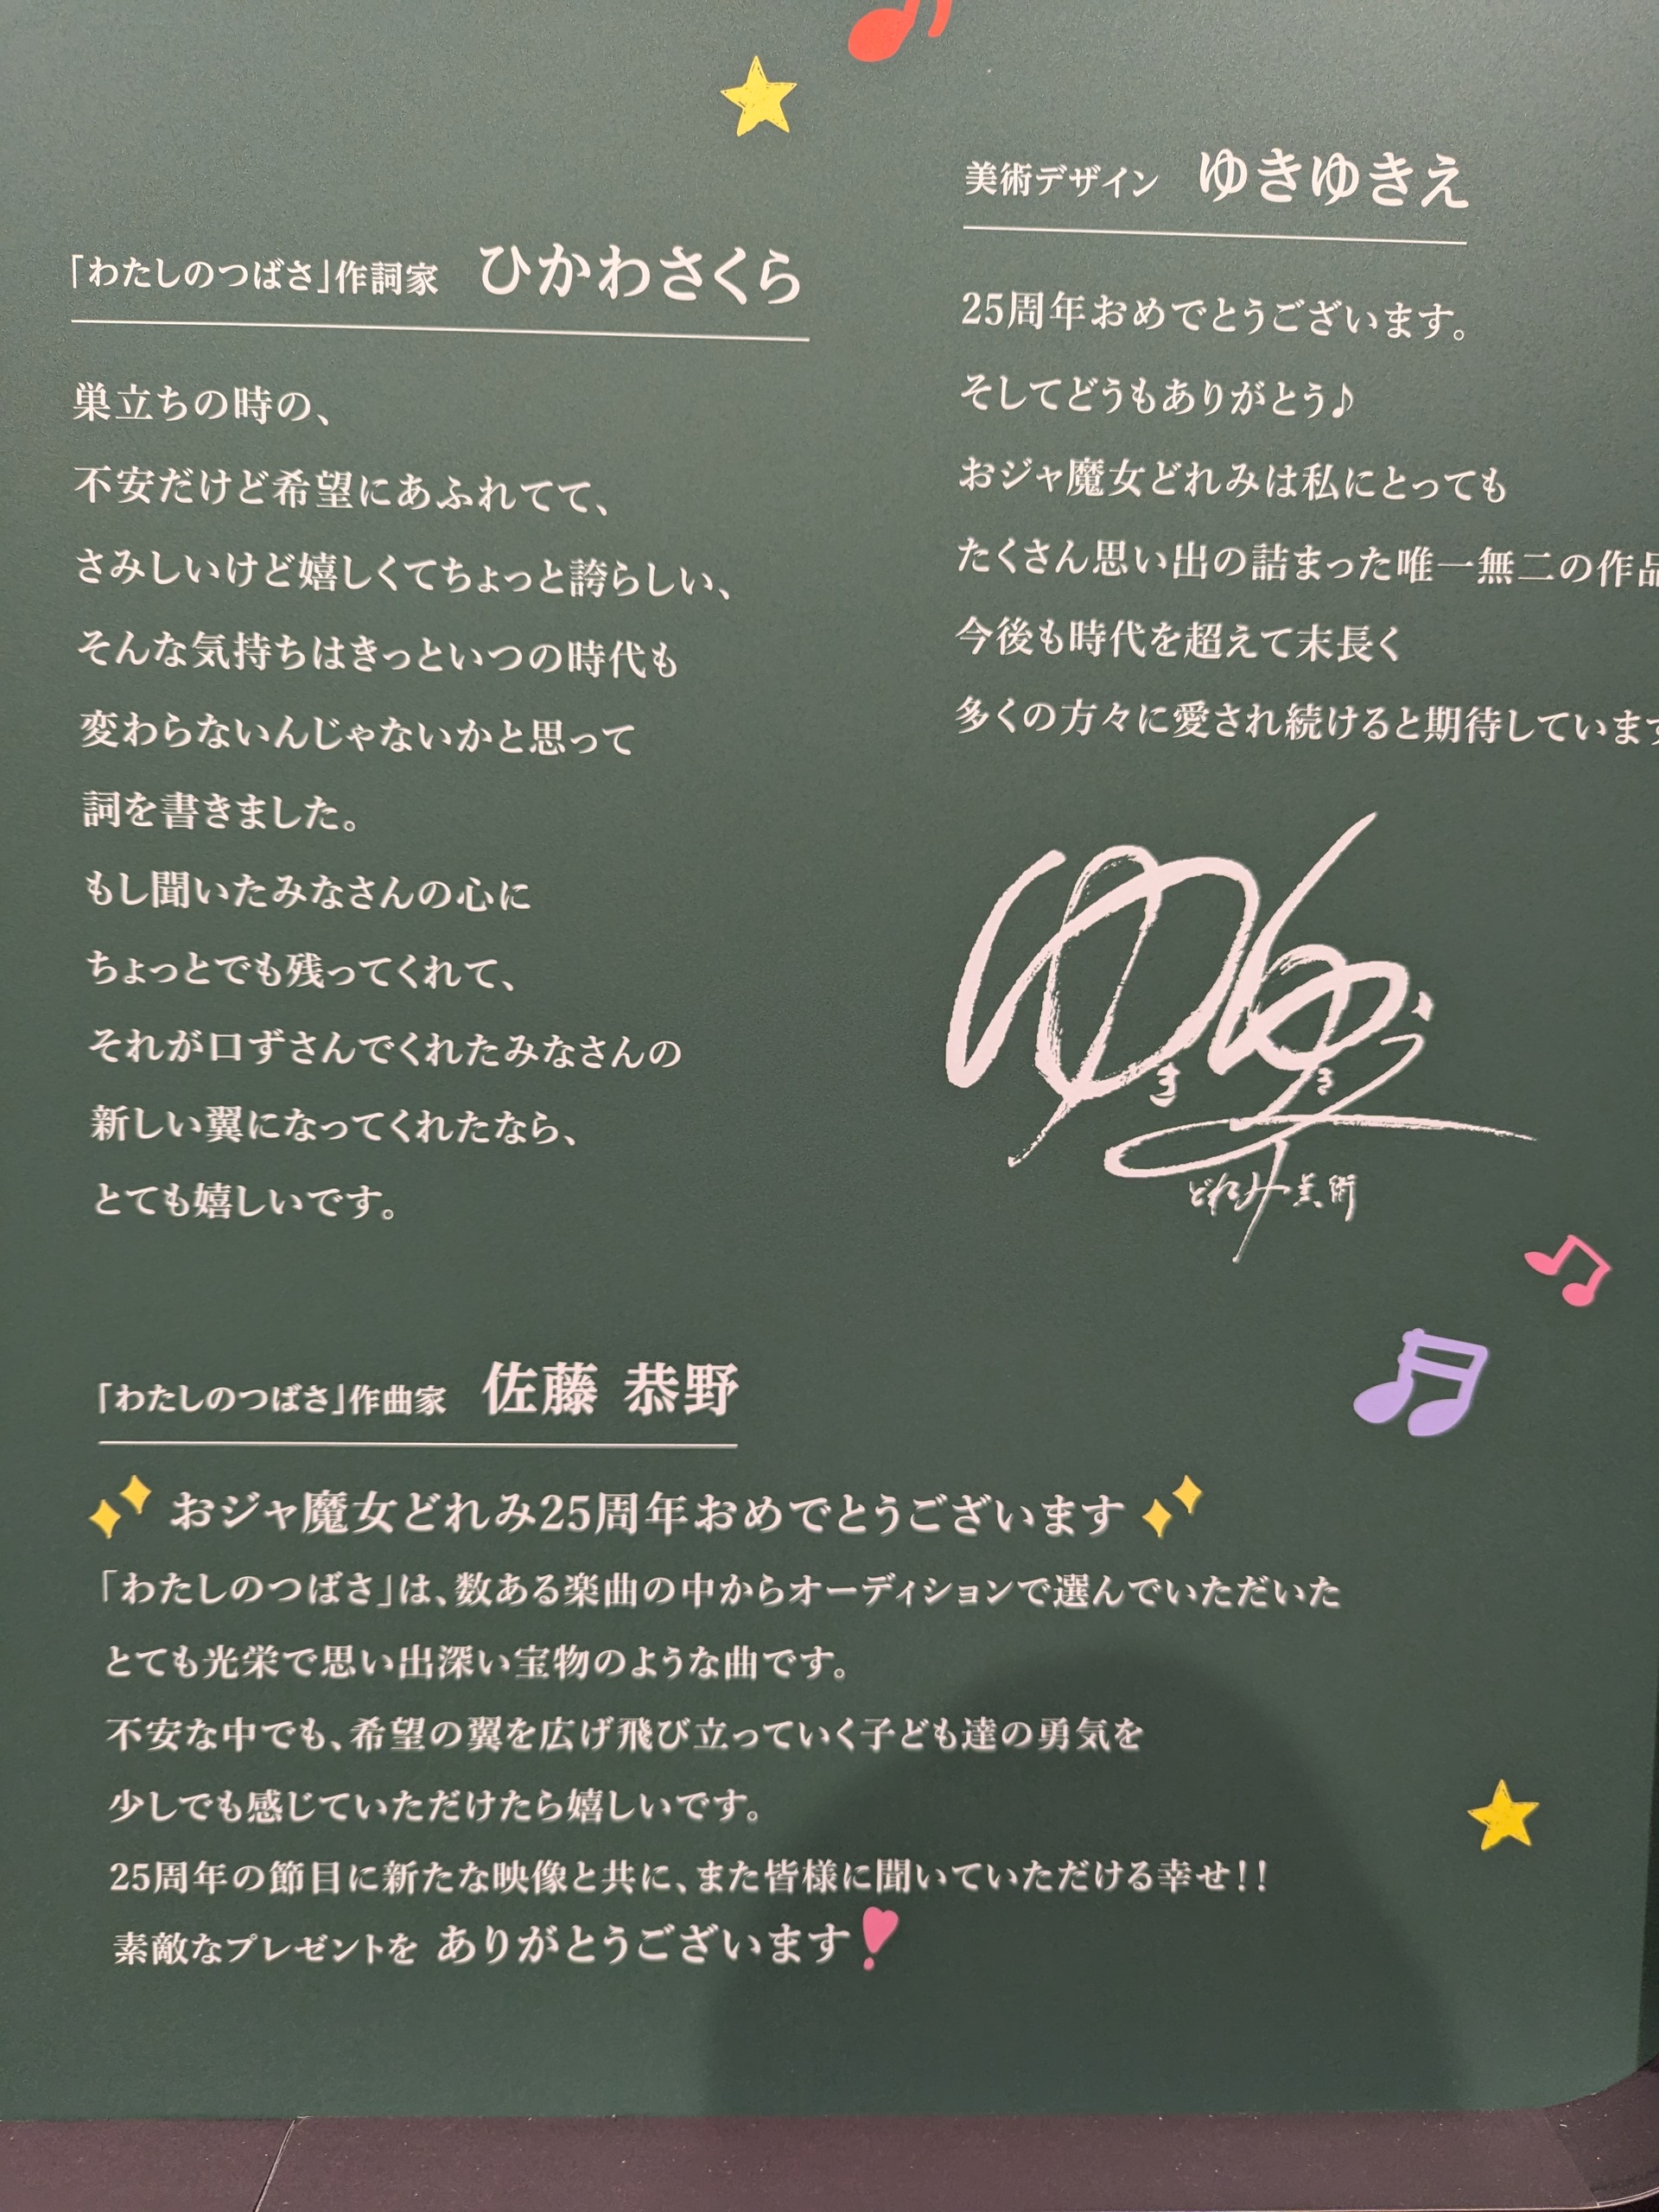 「わたしのつばさ」作詞家 ひかわさくら
巣立ちの時の、
不安だけど希望にあふれてて、
さみしいけど嬉しくてちょっと誇らしい、
そんな気持ちはきっといつの時代も
変わらないんじゃないかと思って
詞を書きました。
もし聞いたみなさんの心に
ちょっとでも残ってくれて、
それが口ずさんでくれたみなさんの
新しい翼になってくれたなら、
とても嬉しいです。
美術デザイン ゆきゆきえ
25周年おめでとうございます。
そしてどうもありがとう♪
おジャ魔女どれみは私にとっても
たくさん思い出の詰まった唯一無二の作品
今後も時代を超えて末長く
多くの方々に愛され続けると期待しています
ゆきゆきえ
どれみ美術
「わたしのつばさ」作曲家 佐藤 恭野
おジャ魔女どれみ25周年おめでとうございます
「わたしのつばさ」は、数ある楽曲の中からオーディションで選んでいただいた
とても光栄で思い出深い宝物のような曲です。
不安な中でも、希望の翼を広げ飛び立っていく子ども達の勇気を
少しでも感じていただけたら嬉しいです。
25周年の節目に新たな映像と共に、また皆様に聞いていただける幸せ!!
素敵なプレゼントを ありがとうございます